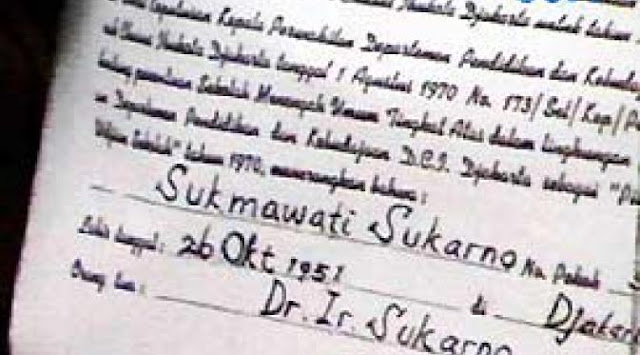 Djakarta
Keputusan Kepala Perwakilan Departemen Pendidikan dan Kebuda
Djakarta tanggal 1 Agustus 1970 No. 173/Sel/Kep/
tentang penentuan Sekolah Menengah Umum Tingkat Atas dalam lingkungan
Departemen Pendidikan dan Kebudajaan D.C.I. Djakarta sebagai
Sekolah" tahun 1970, menerangkan bahwa :
Sukmawati Sukarno No. Pokok
Lahir tanggal : 26 Okt 1951 di Djakar
Orang tua : Dr. Ir. Sukarno